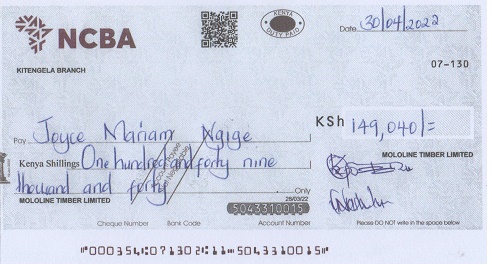 NCBA
KENYA
DUTY PAID
Date 30/04/2022
KITENGELA BRANCH
07-130
Pay Joyce Mariam Ngige
KSh 149,040/=
Kenya Shillings One hundred and forty nine
MOLOLINE TIMBER LIMITED
thousand and forty
Only
MOLOLINE TIMBER LIMITED
28/03/22
5043310015
Cheque Number Bank Code Account Number
Please DO NOT write in the space below
"000354⑆07130211⑈5043310015"